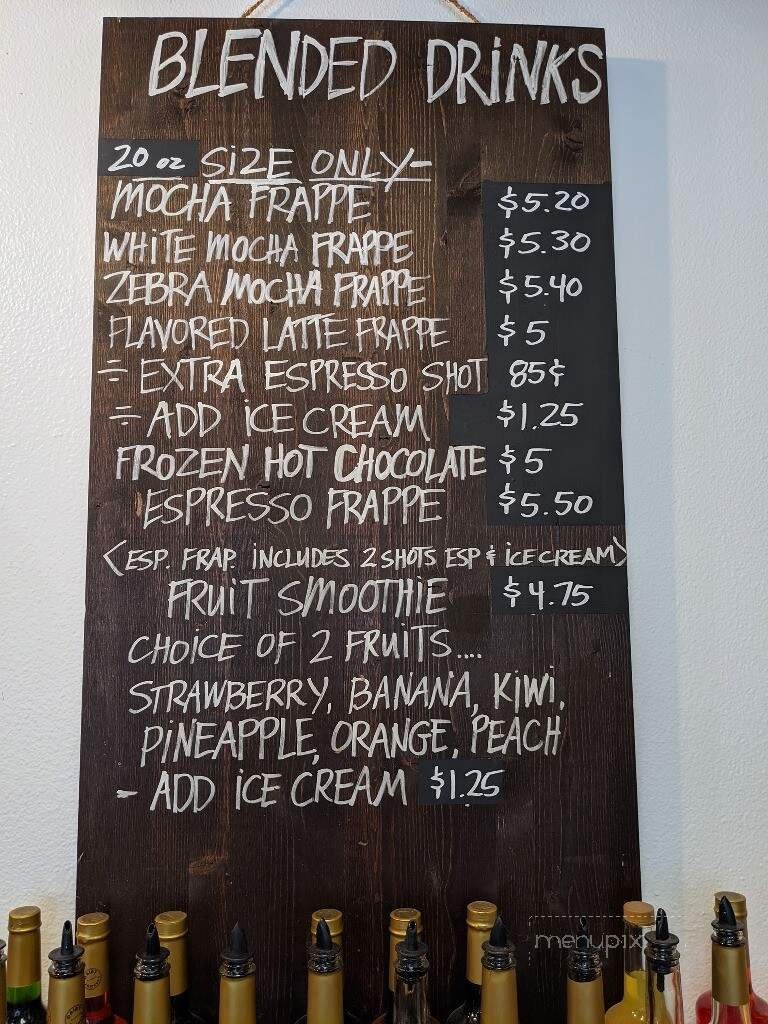 BLENDED DRINKS
20 oz SiZE ONLY-
MOCHA FRAPPE $5.20
WHiTE MOCHA FRAPPE $5.30
ZEBRA MOCHA FRAPPE $5.40
FLAVORED LATTE FRAPPE $5
÷ EXTRA ESPRESSO SHOT 85¢
÷ ADD iCE CREAM $1.25
FROZEN HOT CHOCOLATE $5
ESPRESSO FRAPPE $5.50
<ESP. FRAP. iNCLUDES 2 SHOTS ESP & iCE CREAM>
FRUiT SMOOTHiE $4.75
CHOiCE OF 2 FRUiTS....
STRAWBERRY, BANANA, KiWi,
PiNEAPPLE, ORANGE, PEACH
- ADD iCE CREAM $1.25
menupix